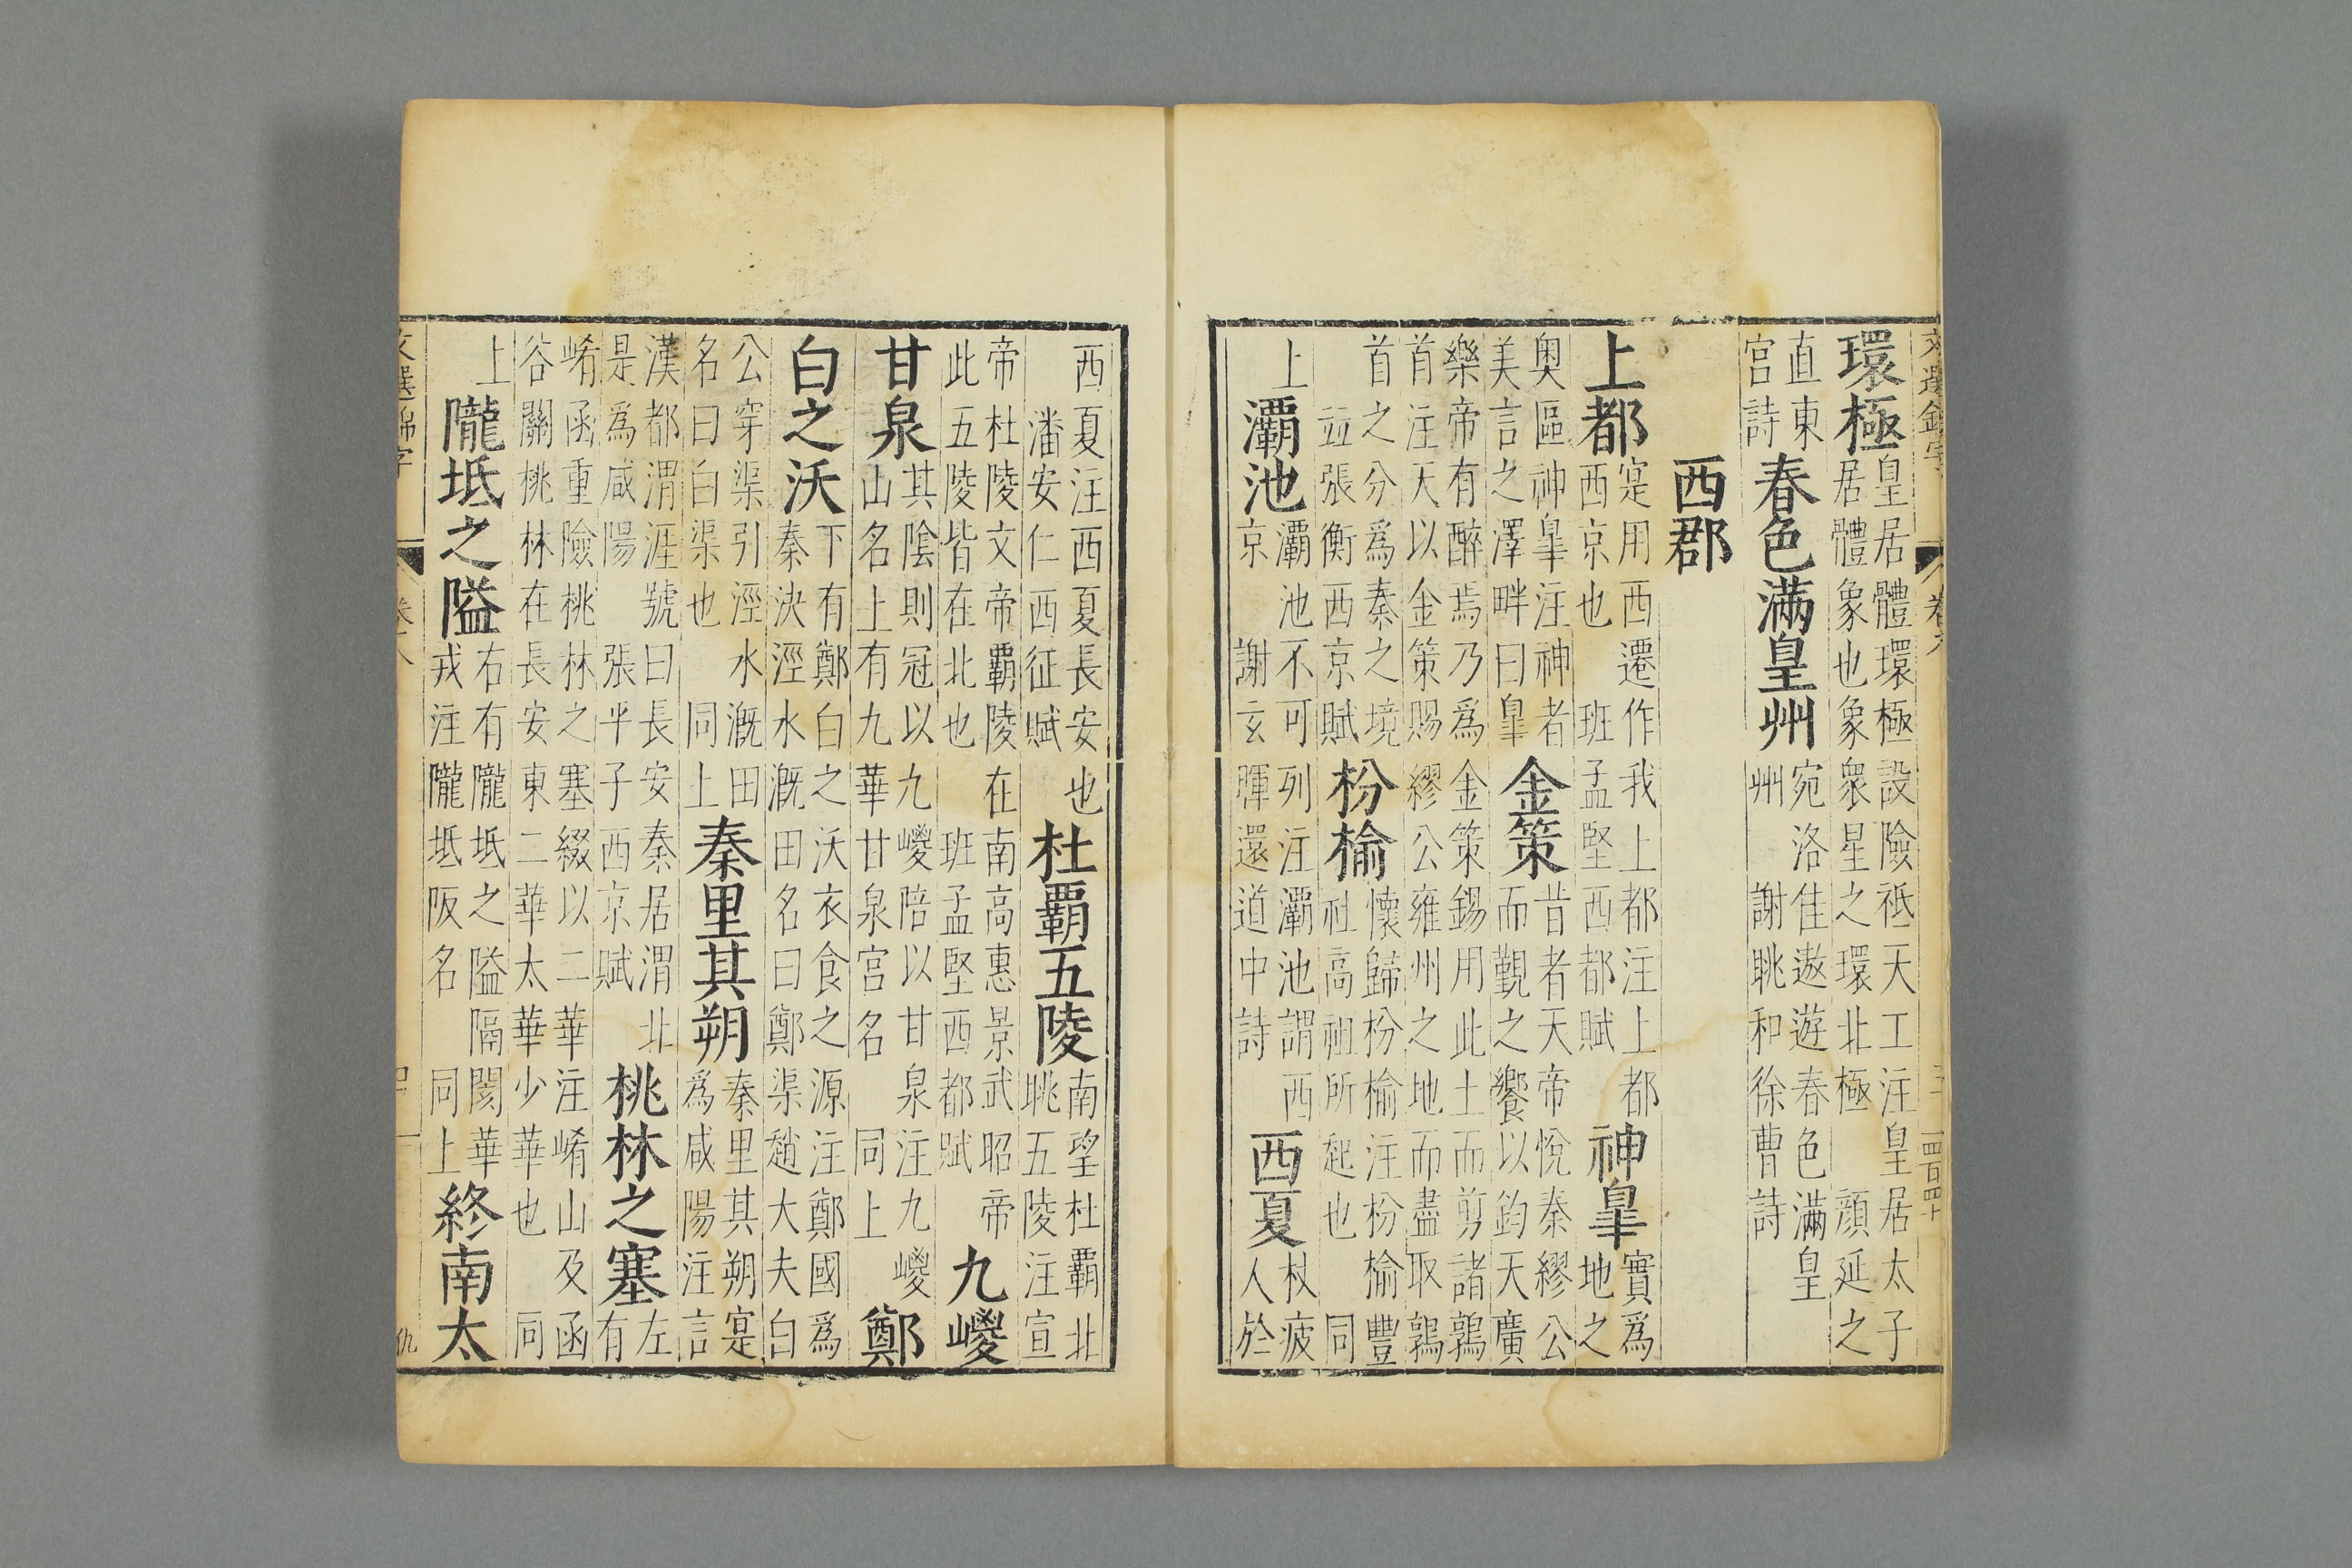 文選錦字 卷六 四百四十
環極皇居體環極設險祗天工注皇居太子居體象也象衆星之環北極 顔延之
直東宮詩 春色滿皇州宛洛佳遨遊春色滿皇州 謝眺和徐曹詩
西郡
上都寔用西遷作我上都注上都西京也 班孟堅西都賦 神皐實爲地之
奥區神皐注神者美言之澤畔曰皐 金策昔者天帝悅秦繆公而覲之饗以鈞天廣
樂帝有醉焉乃爲金策錫用此土而剪諸鶉首注天以金策賜繆公雍州之地而盡取鶉
首之分爲秦之境並張衡西京賦 枌榆懷歸枌榆注枌榆豐社高祖所起也 同
上 灞池灞池不可列注灞池謂西京 謝玄暉還道中詩 西夏杖疲人於
西夏注西夏長安也 潘安仁西征賦 杜覇五陵南望杜覇北眺五陵注宣
帝杜陵文帝覇陵在南高惠景武昭帝此五陵皆在北也 班孟堅西都賦 九嵕
甘泉其陰則冠以九嵕陪以甘泉注九嵕山名上有九華甘泉宮名 同上 鄭
白之沃下有鄭白之沃衣食之源注鄭國爲秦決涇水溉田名曰鄭渠趙大夫白
公穿渠引涇水溉田名曰白渠也 同上 秦里其朔秦里其朔寔爲咸陽注言
漢都渭涯號曰長安秦居渭北是爲咸陽 張平子西京賦 桃林之塞左有
崤函重險桃林之塞綴以二華注崤山及函谷關桃林在長安東二華太華少華也 同
上 隴坻之隘右有隴坻之隘隔閡華戎注隴坻阪名 同上 終南太
文選錦字 卷六 四 仇